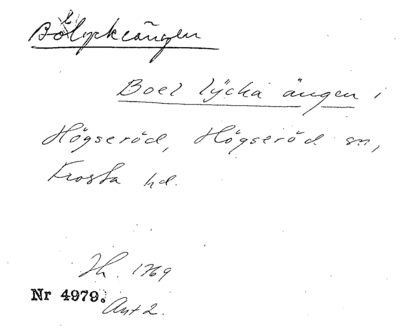 Bölyckeängen
Boel lycka ängen i
Högseröd, Högseröd sn,
Frosta hd.
Jh. 1769
Nr 4979.
Akt 2.